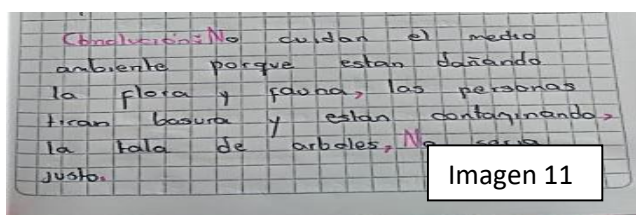 Conclución: No cuidan el medio
ambiente porque estan dañando
la flora y fauna, las personas
tiran basura y estan contaminando,
la tala de arboles, No sería
justo.
Imagen 11